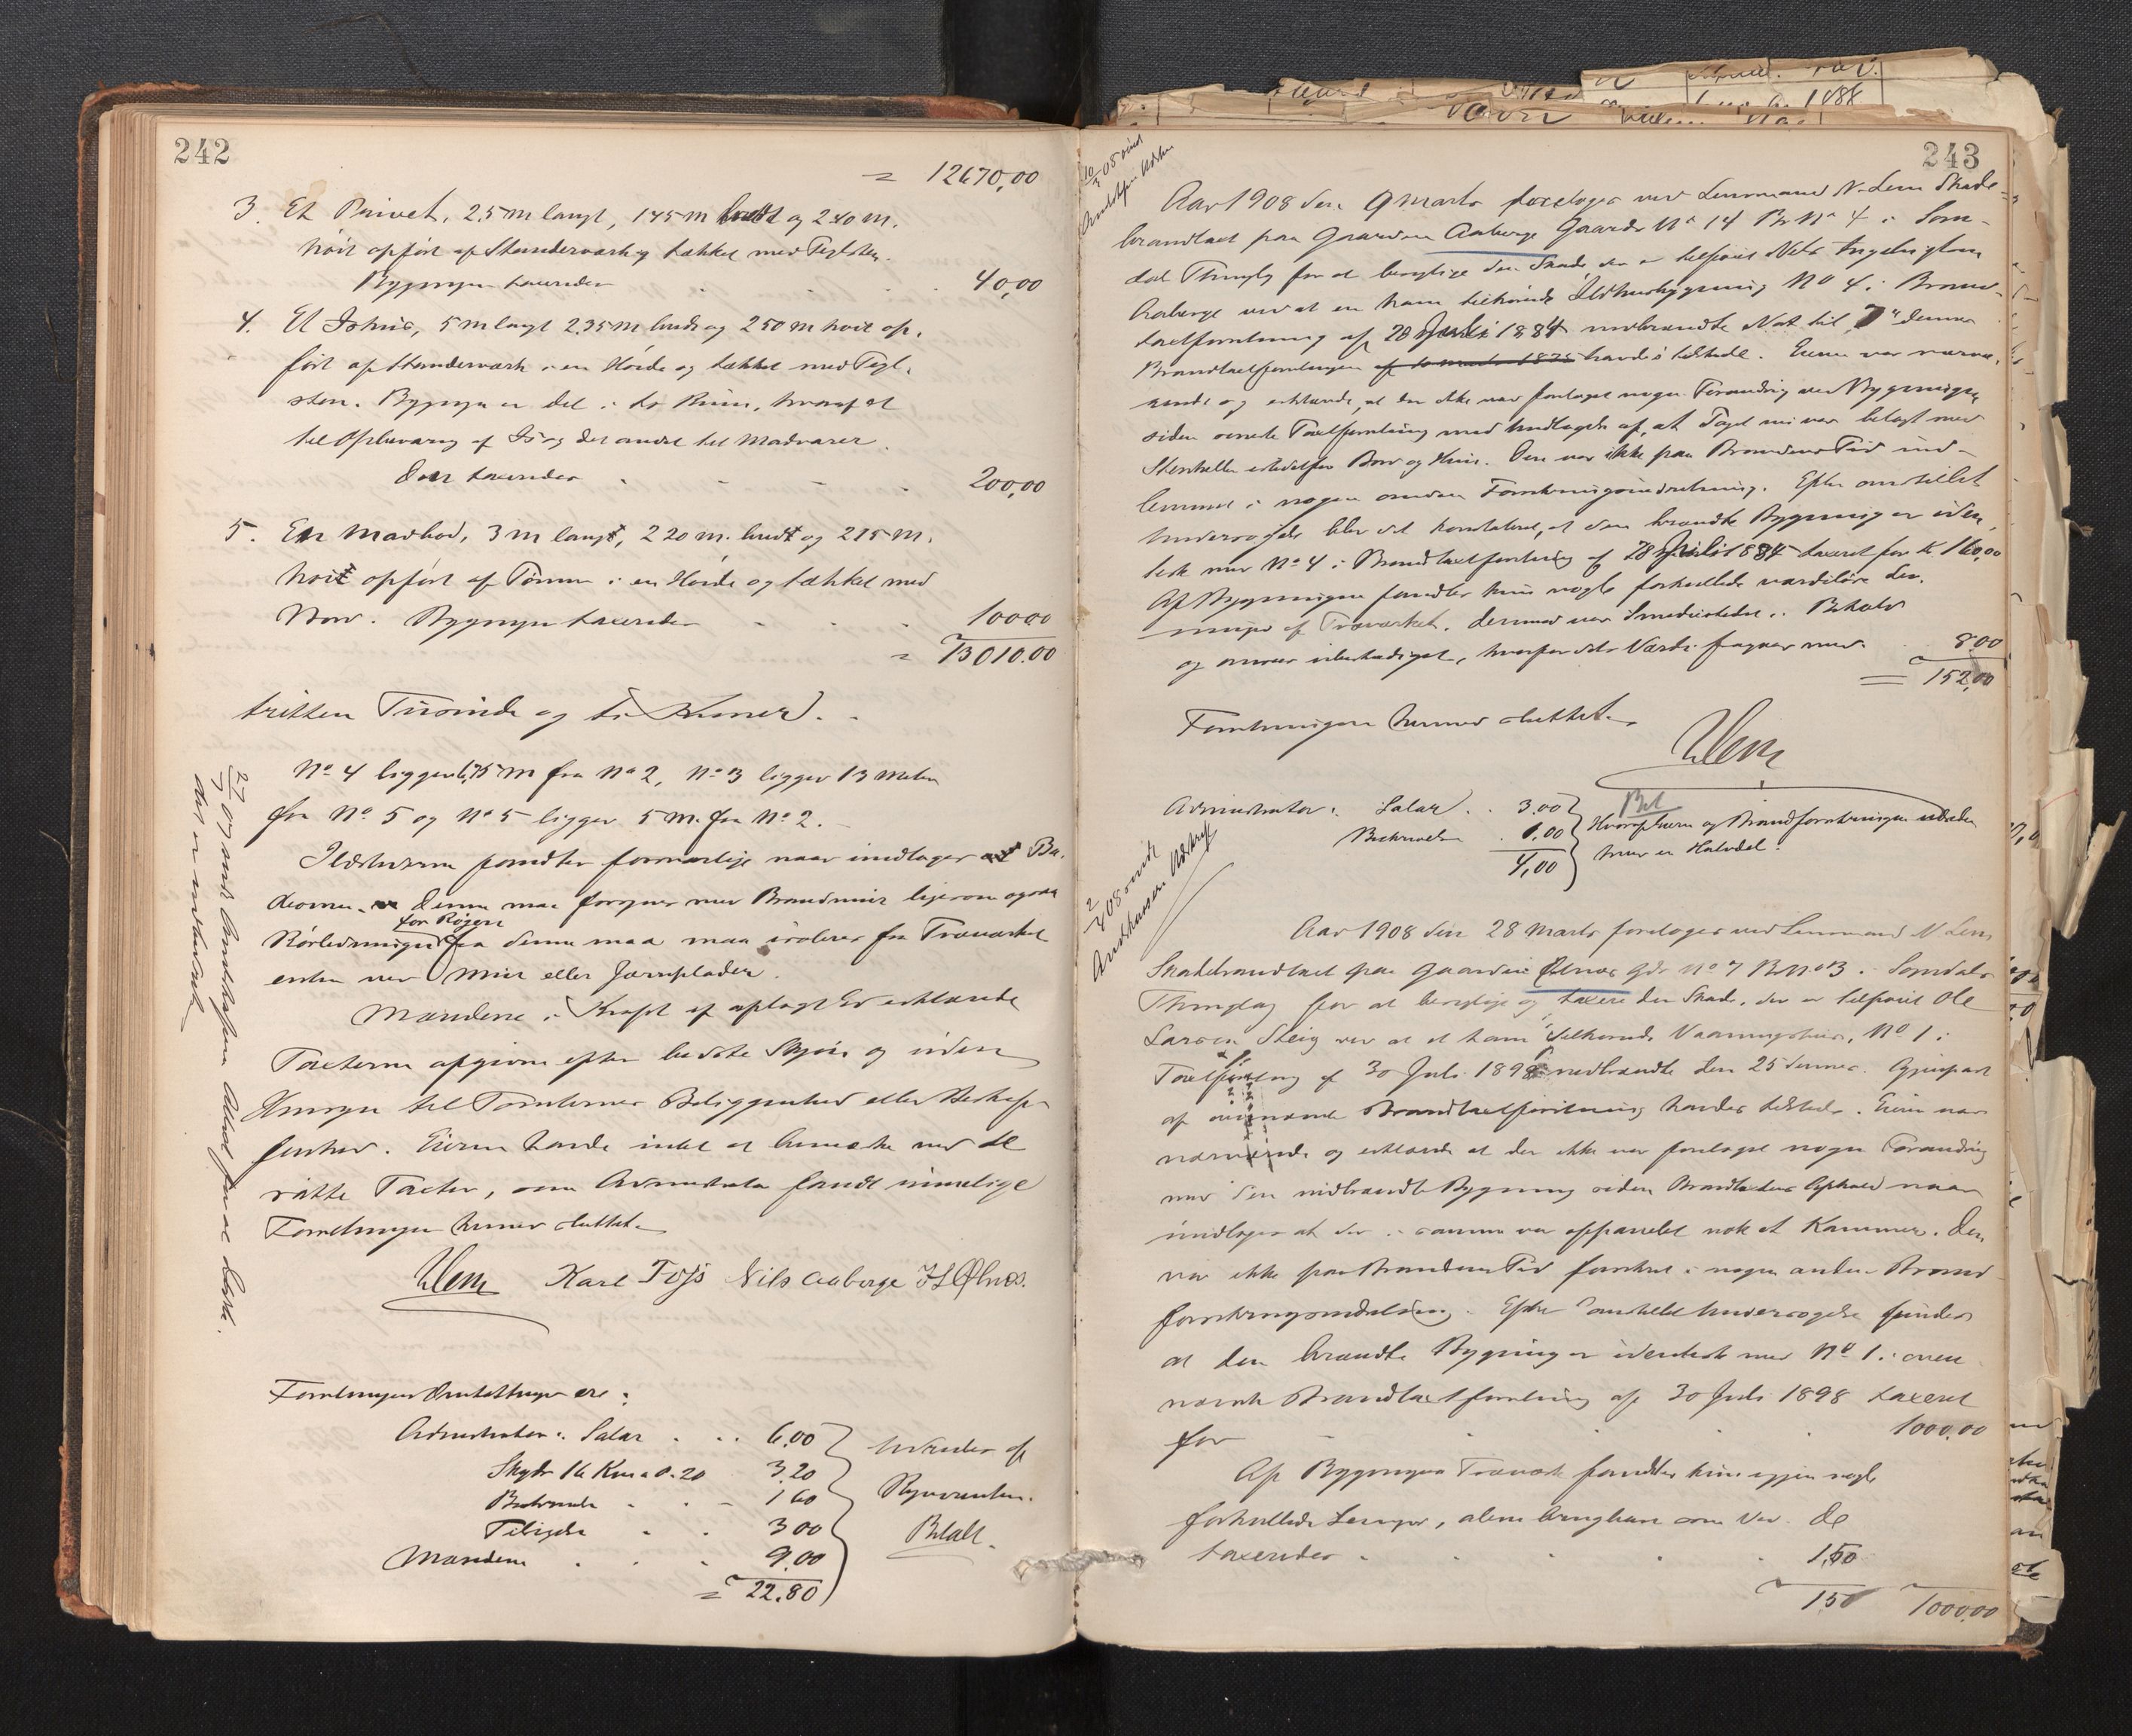 242
= 12670,00
3. Et Privet, 2.5 m langt, 1.45 m bredt og 2.40 m.
høit opført af Stenderverk og tækket med Teglsten.
Bygningen taxeredes 40,00
4. Et Ishus, 5 m langt 2.35 m bredt og 2.50 m høit op-
ført af Stenderverk i en Høide og tækket med Tegl-
sten. Bygningen er delt i to Rum, hvoraf et
til Opbevaring af Is og det andet til Madvarer.
Den taxeredes 200,00
5. En Madbod, 3 m langt, 2 20 m. bredt og 215 m.
høit opført af Tømmer i en Høide og tækket med
Bord. Bygningen taxeredes 100.00
= 13010.00
tretten Tusinde og ti Kroner.
No 4 ligger 1,75 m fra No 2, No 3 ligger 13 Meter
fra No 5 og No 5 ligger 5 m. fra No 2.
Ildstederne fandtes forsvarlige naar undtages
denne maa forsynes med Brandmur ligesom ogsaa
for Røgen
Rørledningen fra denne maa maa isoleres fra Træværket
enten ved Mur eller Jernplader.
Mændene i Kraft af aflagt Ed erklærede
Taxterne afgivne efter bedste Skjøn og uden
Hensyn til Tomternes Beliggenhed eller Beskaf-
fenhed. Eieren havde intet at bemerke ved de
satte Taxter, som Administrator fandt rimelige
Forretningen hermed sluttet.
NLem Karl Nils Aaberge Ølnes.
Forretningens Omkostninger ere:
Administrator i Salær 6,00
Skyds 16 Km a 0.20 3,20
Beskrivelse 1 60
3 00
Mændene 9,00
= 22.80
Udredes af
Rekvirenten.
Betalt.
243
Aar 1908 den 9 Marts foretoges ved Lensmand N. Lem Skade-
brandtaxt paa Gaarden Aaberge Gaards No 14 Br No 4 i Sogn-
dal Thinglag for at besigtige den Skade, der er tilføiet Nils Ingebrigtsen
Aaberge ved at en ham tilhørende Ildhusbygning No 4 i Brand-
taxtforretning af 28 Juli 1884 nedbrændte Nat til 7de dennes
Brandtaxtforretningen af 10 Marts 1875 havdes tilstede. Eieren var nærvæ-
rende og erklærede, at der ikke var foretaget nogen Forandring ved Bygningen
siden ovennævnte Taxtforretning med Undtagelse af, at Taget nu var belagt med
Stenheller istedetfor Bord og Hun. Den var ikke paa Brandens Tid ind-
lemmet i nogen anden Forsikringsindretning. Efter anstillet
Undersøgelse blev det konstateret, at den brændte Bygning er iden-
tisk med No 4 i Brandtaxtforretning af 28 Juli 1884 taxeret for K. 160,00
Af Bygningen fandtes kun nogle forkullede værdiløse Lev-
ninger af Træværket, derimod var i Behold
og ansees ubeskadiget, hvorfor dets Værdi fragaar med 8.00
= 152,00
Forretningen hermed sluttet.
NLem
Administrator i Salær 3.00
Beskrivelse 1,00
4,00
Bet
Hvoraf Eieren og Brandforsikringen udreder
hver en Halvdel.
Aar 1908 den 28 Marts foretoges ved Lensmand N Lem
Skadebrandtaxt paa Gaarden Ølnes Gds No 7 B No 3 i Sogndals
Thinglag for at besigtige og taxere den Skade, der er tilføiet Ole
Larsen Steig ved at et ham tilhørende Vaaningshus, No 1 i
Taxtforretning af 30 Juli 1898 nedbrændte den 25 dennes. Gjenpart
af ovennævnte Brandtaxtforretning havdes tilstede. Eieren var
nærværende og erklærede at der ikke var foretaget nogen Forandring
med den nedbrændte Bygning siden Brandtaxtens Afhold naar
undtages at der i samme var oppanelet nok et Kammer. Den
var ikke paa Brandens Tid forsikret i nogen anden Brand-
forsikringsindretning. Efter anstillet Undersøgelse findes
at den brændte Bygning er identisk med No 1 i oven-
nævnte Brandtaxtforretning af 30 Juli 1898 taxeret
for 1000.00
Af Bygningens Træværk fandtes kun igjen nogle
forkullede Levninger, alene brugbare som Ved. De
taxeredes 1,50
1 50 1000.00